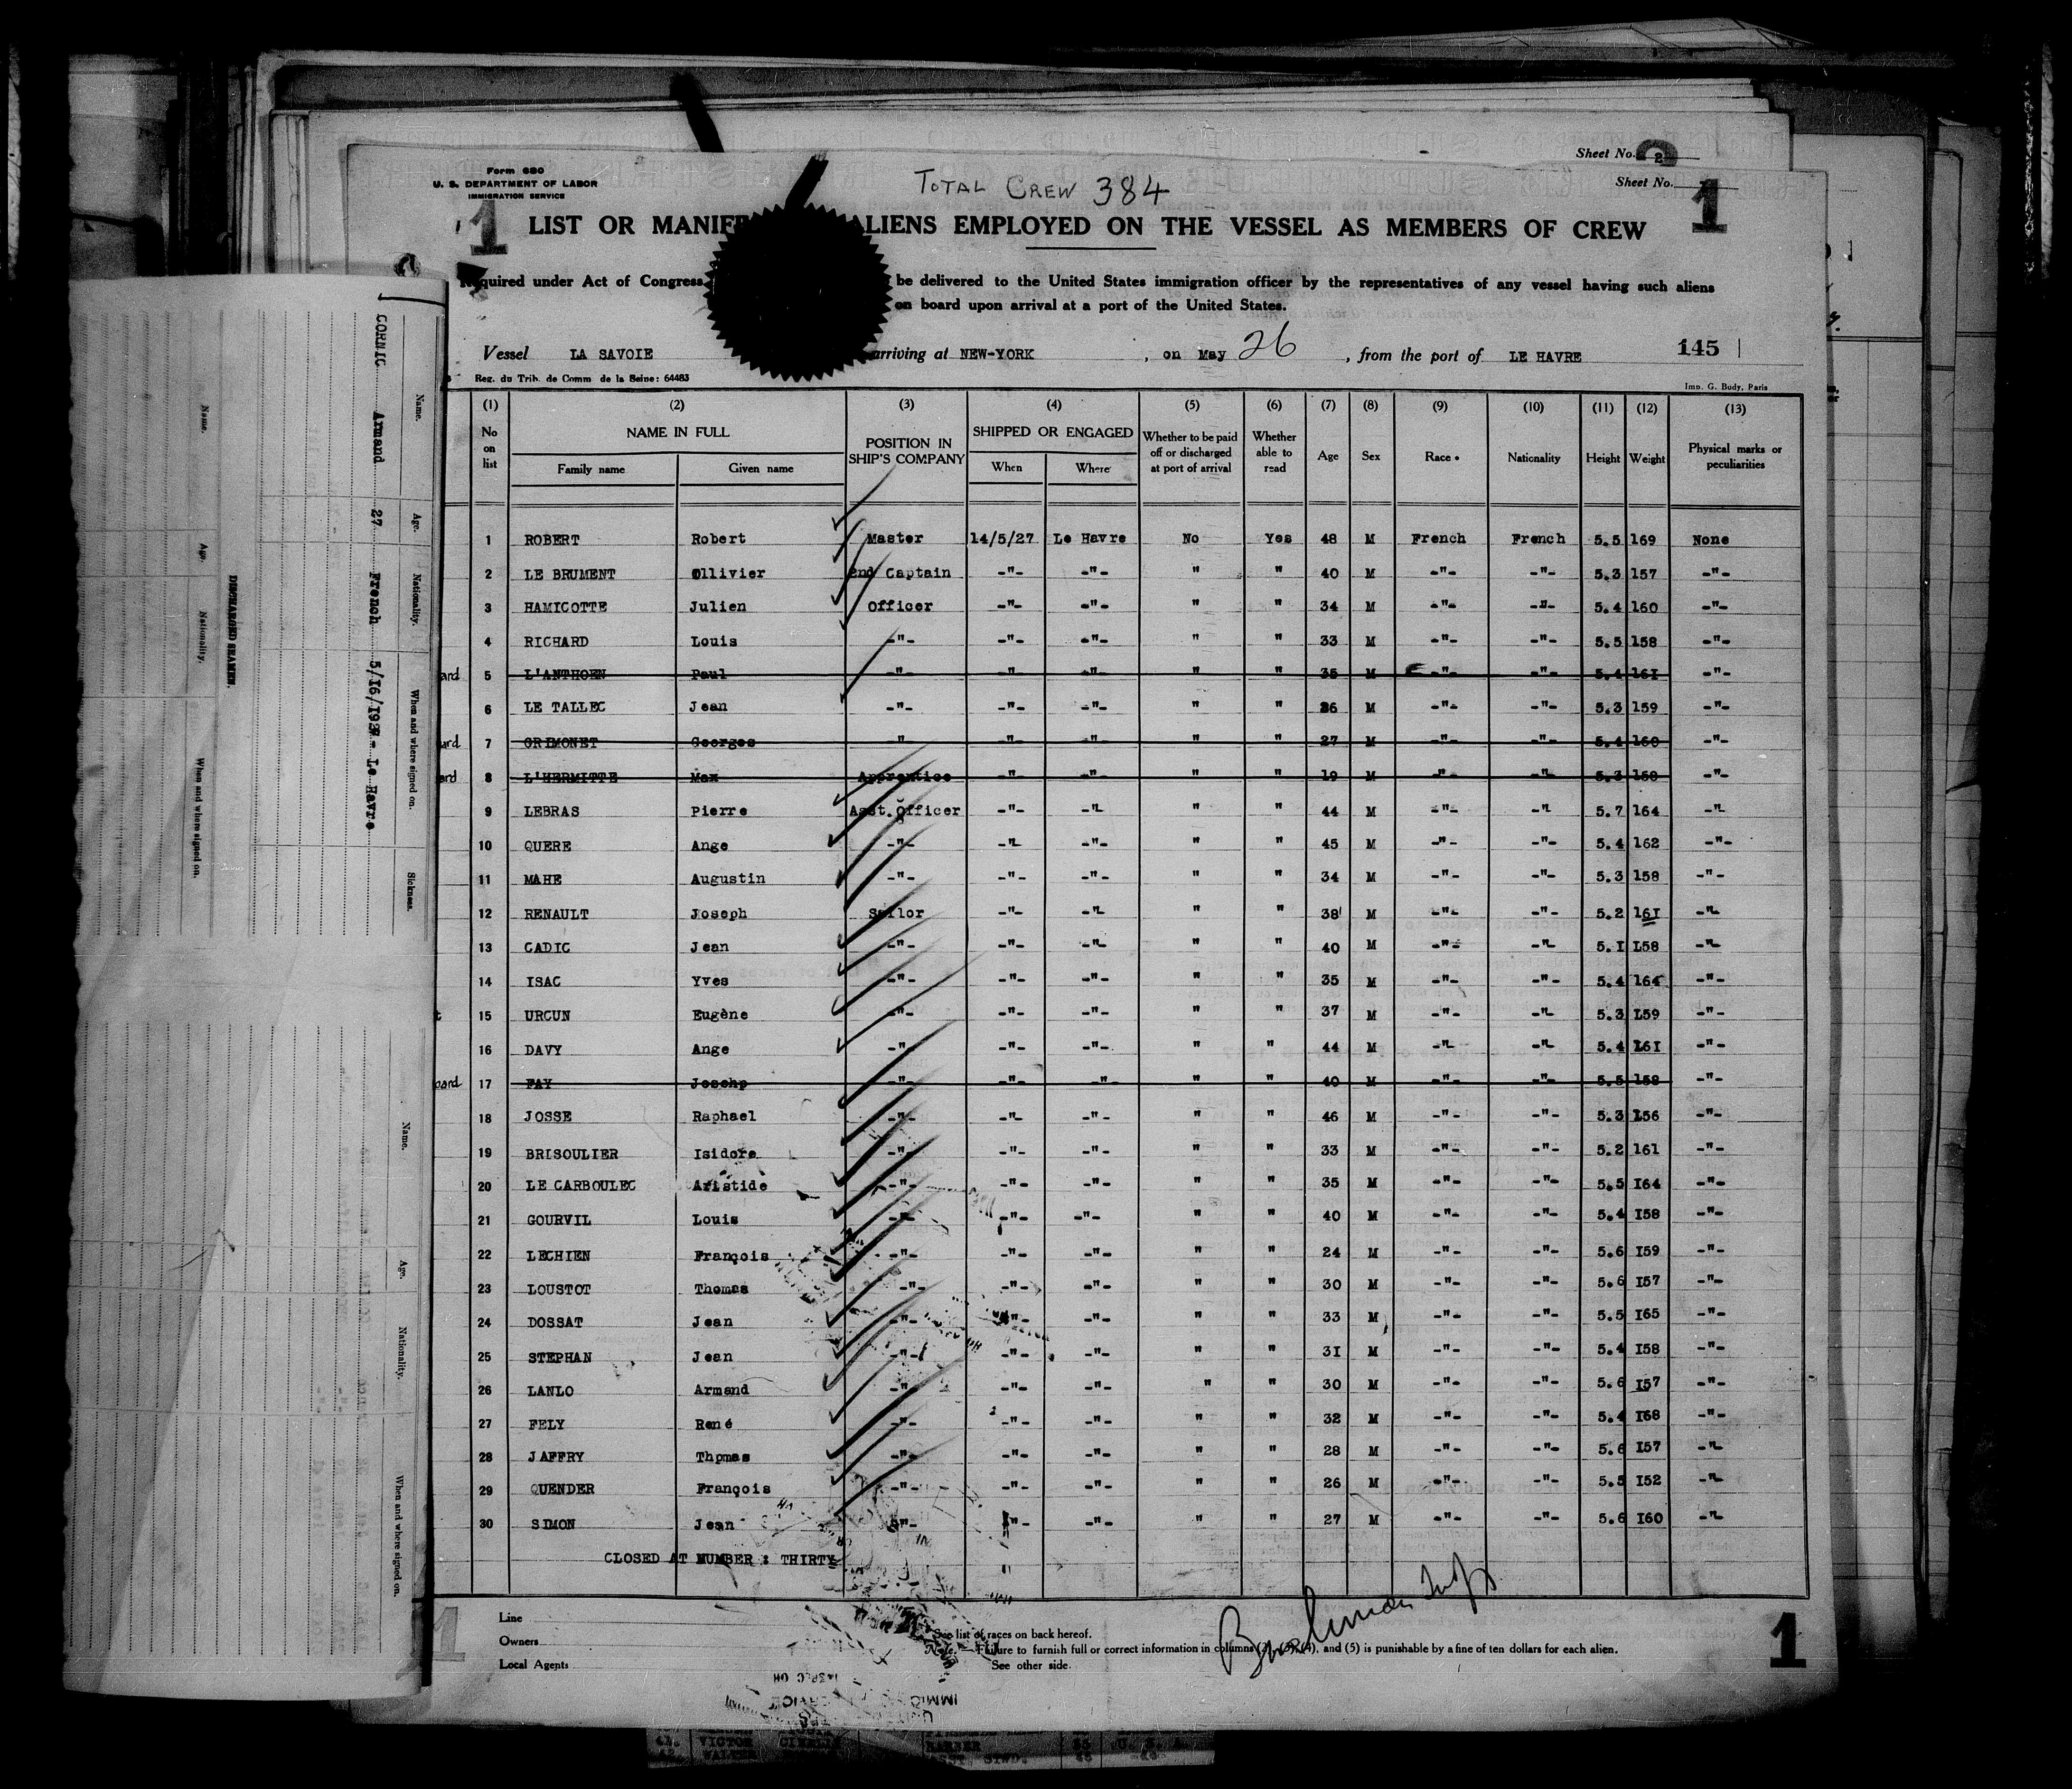 Sheet No. 2
Sheet No. 1
Form 680
U. S. DEPARTMENT OF LABOR
IMMIGRATION SERVICE
TOTAL CREW 384
1
LIST OR MANIFE ALIENS EMPLOYED ON THE VESSEL AS MEMBERS OF CREW
Required under Act of Congress be delivered to the United States immigration officer by the representatives of any vessel having such aliens
on board upon arrival at a port of the United States.
Vessel LA SAVOIE arriving at NEW-YORK, on May 26, from the port of LE HAVRE 145
Reg. du Trib. de Comm de la Seine: 64483
Imp. G. Body, Paris
(1) (2) (3) (4) (5) (6) (7) (8) (9) (10) (11) (12) (13)
No on list NAME IN FULL POSITION IN SHIP'S COMPANY SHIPPED OR ENGAGED Whether to be paid off or discharged at port of arrival Whether able to read Age Sex Race Nationality Height Weight Physical marks or peculiarities
Family name Given name When Where
1 ROBERT Robert Master 14/5/27 Le Havre No Yes 48 M French French 5.5 169 None
2 LE BRUMENT Ollivier 2nd Captain -"- -"- " " 40 M -"- -"- 5.3 157 -"-
3 HAMICOTTE Julien Officer -"- -"- " " 34 M -"- -"- 5.4 160 -"-
4 RICHARD Louis -"- -"- -"- " " 33 M -"- -"- 5.5 158 -"-
5 L'ANTHOEN Paul -"- -"- -"- " " 35 M -"- -"- 5.4 161 -"-
6 LE TALLEC Jean -"- -"- -"- " " 26 M -"- -"- 5.3 159 -"-
7 GRIMONET Georges -"- -"- -"- " " 27 M -"- -"- 5.4 160 -"-
8 L'HERMITTE Max Apprentice -"- -"- " " 19 M -"- -"- 5.3 150 -"-
9 LEBRAS Pierre Asst.Officer -"- -"- " " 44 M -"- -"- 5.7 164 -"-
10 QUERE Ange -"- -"- -"- " " 45 M -"- -"- 5.4 162 -"-
11 MAHE Augustin -"- -"- -"- " " 34 M -"- -"- 5.3 158 -"-
12 RENAULT Joseph Sailor -"- -"- " " 38 M -"- -"- 5.2 16I -"-
13 CADIC Jean -"- -"- -"- " " 40 M -"- -"- 5.I 158 -"-
14 ISAC Yves -"- -"- -"- " " 35 M -"- -"- 5.4 164 -"-
15 URCUN Eugène -"- -"- -"- " " 37 M -"- -"- 5.3 159 -"-
16 DAVY Ange -"- -"- -"- " " 44 M -"- -"- 5.4 16I -"-
17 FAY Josehp -"- -"- -"- " " 40 M -"- -"- 5.5 158 -"-
18 JOSSE Raphael -"- -"- -"- " " 46 M -"- -"- 5.3 156 -"-
19 BRISOULIER Isidore -"- -"- -"- " " 33 M -"- -"- 5.2 161 -"-
20 LE CARBOULEC Aristide -"- -"- -"- " " 35 M -"- -"- 5.5 I64 -"-
21 GOURVIL Louis -"- -"- -"- " " 40 M -"- -"- 5.4 I58 -"-
22 LECHIEN François -"- -"- -"- " " 24 M -"- -"- 5.6 I59 -"-
23 LOUSTOT Thomas -"- -"- -"- " " 30 M -"- -"- 5.6 I57 -"-
24 DOSSAT Jean -"- -"- -"- " " 33 M -"- -"- 5.5 I65 -"-
25 STEPHAN Jean -"- -"- -"- " " 31 M -"- -"- 5.4 I58 -"-
26 LANLO Armand -"- -"- -"- " " 30 M -"- -"- 5.6 I57 -"-
27 FELY René -"- -"- -"- " " 32 M -"- -"- 5.4 I68 -"-
28 JAFFRY Thomas -"- -"- -"- " " 28 M -"- -"- 5.6 I57 -"-
29 QUENDER François -"- -"- -"- " " 26 M -"- -"- 5.5 I52 -"-
30 SIMON Jean -"- -"- -"- " " 27 M -"- -"- 5.6 I60 -"-
CLOSED AT NUMBER : THIRTY
Line
Owners
Local Agents
See list of races on back hereof.
Note.—Failure to furnish full or correct information in columns (2), (3), (4), and (5) is punishable by a fine of ten dollars for each alien.
See other side.
1
Name. Age. Nationality. When and where signed on. Sickness.
CORNIC Armand 27 French 5/16/1927- Le Havre
DISCHARGED SEAMEN.
Name. Age. Nationality. When and where signed on.
Name. Age. Nationality. When and where signed on.
VICTOR
WALTER